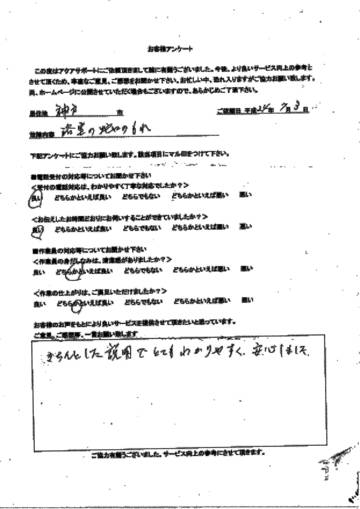 お客様アンケート
この度はアクアサポートにご依頼頂きまして誠に有難うございました。今後、より良いサービス向上の参考と
させて頂くため、率直なご意見、ご感想をお聞かせ下さい。お忙しい中、恐れ入りますがご協力お願い致します。
尚、ホームページに公開させていただく場合もございますので、あらかじめご了承下さい。
居住地 神戸 市 ご依頼日 平成 年 月 3 日
依頼内容 浴室の もれ
下記アンケートにご協力お願い致します。該当項目にマル印をつけて下さい。
■電話受付の対応等についてお聞かせ下さい
<受付の電話対応は、わかりやすく丁寧な対応でしたか？>
良い どちらかといえば良い どちらでもない どちらかといえば悪い 悪い
<お伝えしたお時間どおりにお伺いすることができていましたか？>
良い どちらかといえば良い どちらでもない どちらかといえば悪い 悪い
■作業員の対応等についてお聞かせ下さい
<作業員の身だしなみは、清潔感がありましたか？>
良い どちらかといえば良い どちらでもない どちらかといえば悪い 悪い
<作業の仕上がりは、ご満足いただけましたか？>
良い どちらかといえば良い どちらでもない どちらかといえば悪い 悪い
お客様のお声をもとにより良いサービスを提供させて頂きたいと思っています。
ご意見、ご感想等、一言お願い致します
きちんとした説明でとてもわかりやすく、安心しました。
ご協力有難うございました。サービス向上の参考にさせて頂きます。